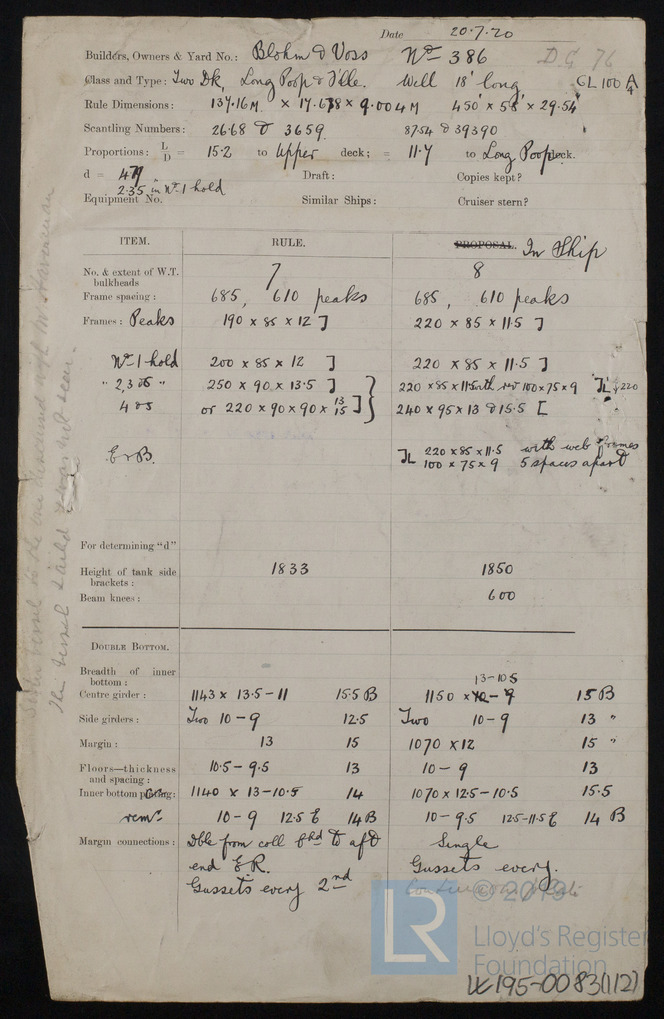 Date 20.7.20
Builders, Owners & Yard No.: Blohm & Voss No 386 DG 76
Class and Type: Two Dk, Long Poop & F'cle. Well 18' long, GL 100 A 4
Rule Dimensions: 137.16M. × 17.678 × 9.004M 450' × 58' × 29.54'
Scantling Numbers: 26.68 & 3659 8754 & 39390
Proportions: L/D = 15.2 to Upper deck; = 11.7 to Long Poop deck.
d = 4.79 Draft: Copies kept?
2.35 in No 1 hold
Equipment No. Similar Ships: Cruiser stern?
ITEM. RULE. PROPOSAL. In Ship
No. & extent of W.T. bulkheads 7 8
Frame spacing: 685, 610 peaks 685, 610 peaks
Frames: Peaks 190 × 85 × 12 ] 220 × 85 × 11.5 ]
No 1 hold 200 × 85 × 12 ] 220 × 85 × 11.5 ]
" 2,3 " 250 × 90 × 13.5 ] 220 × 85 × 11.5 with rev 100×75×9 220
4 or 220 × 90 × 90 × 13/15 ] 240 × 95 × 13 & 15.5 [
E & B. 220 × 85 × 11.5 with web frames
100 × 75 × 9 5 spaces apart
For determining "d"
Height of tank side brackets: 1833 1850
Beam knees: 600
DOUBLE BOTTOM.
Breadth of inner bottom: 13-10.5
Centre girder: 1143 × 13.5-11 15.5 B 1150 × 10-9 15 B
Side girders: Two 10-9 12.5 Two 10-9 13 "
Margin: 13 15 1070 × 12 15 "
Floors—thickness and spacing: 10.5-9.5 13 10-9 13
Inner bottom plating: 1140 × 13-10.5 14 1070 × 12.5-10.5 15.5
remr 10-9 12.5 E 14 B 10-9.5 12.5-11.5 E 14 B
Margin connections: Dble from coll bhd to aft Single
end E.R. Gussets every.
Gussets every 2nd
© 2019
LR Lloyd's Register
Foundation
195-0083(1/2)